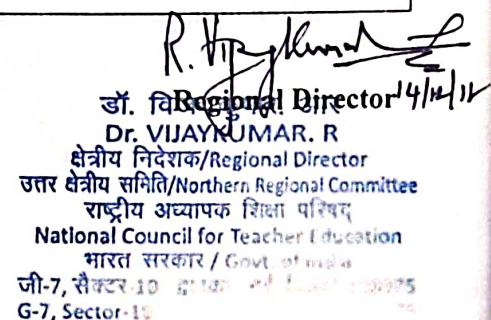 R. Vijaykumar
Regional Director 14/12/12
डॉ. आर
Dr. VIJAYKUMAR. R
क्षेत्रीय निदेशक/Regional Director
उत्तर क्षेत्रीय समिति/Northern Regional Committee
राष्ट्रीय अध्यापक शिक्षा परिषद्
National Council for Teacher Education
भारत सरकार / Govt. of India
जी-7, सैक्टर-10
G-7, Sector-1